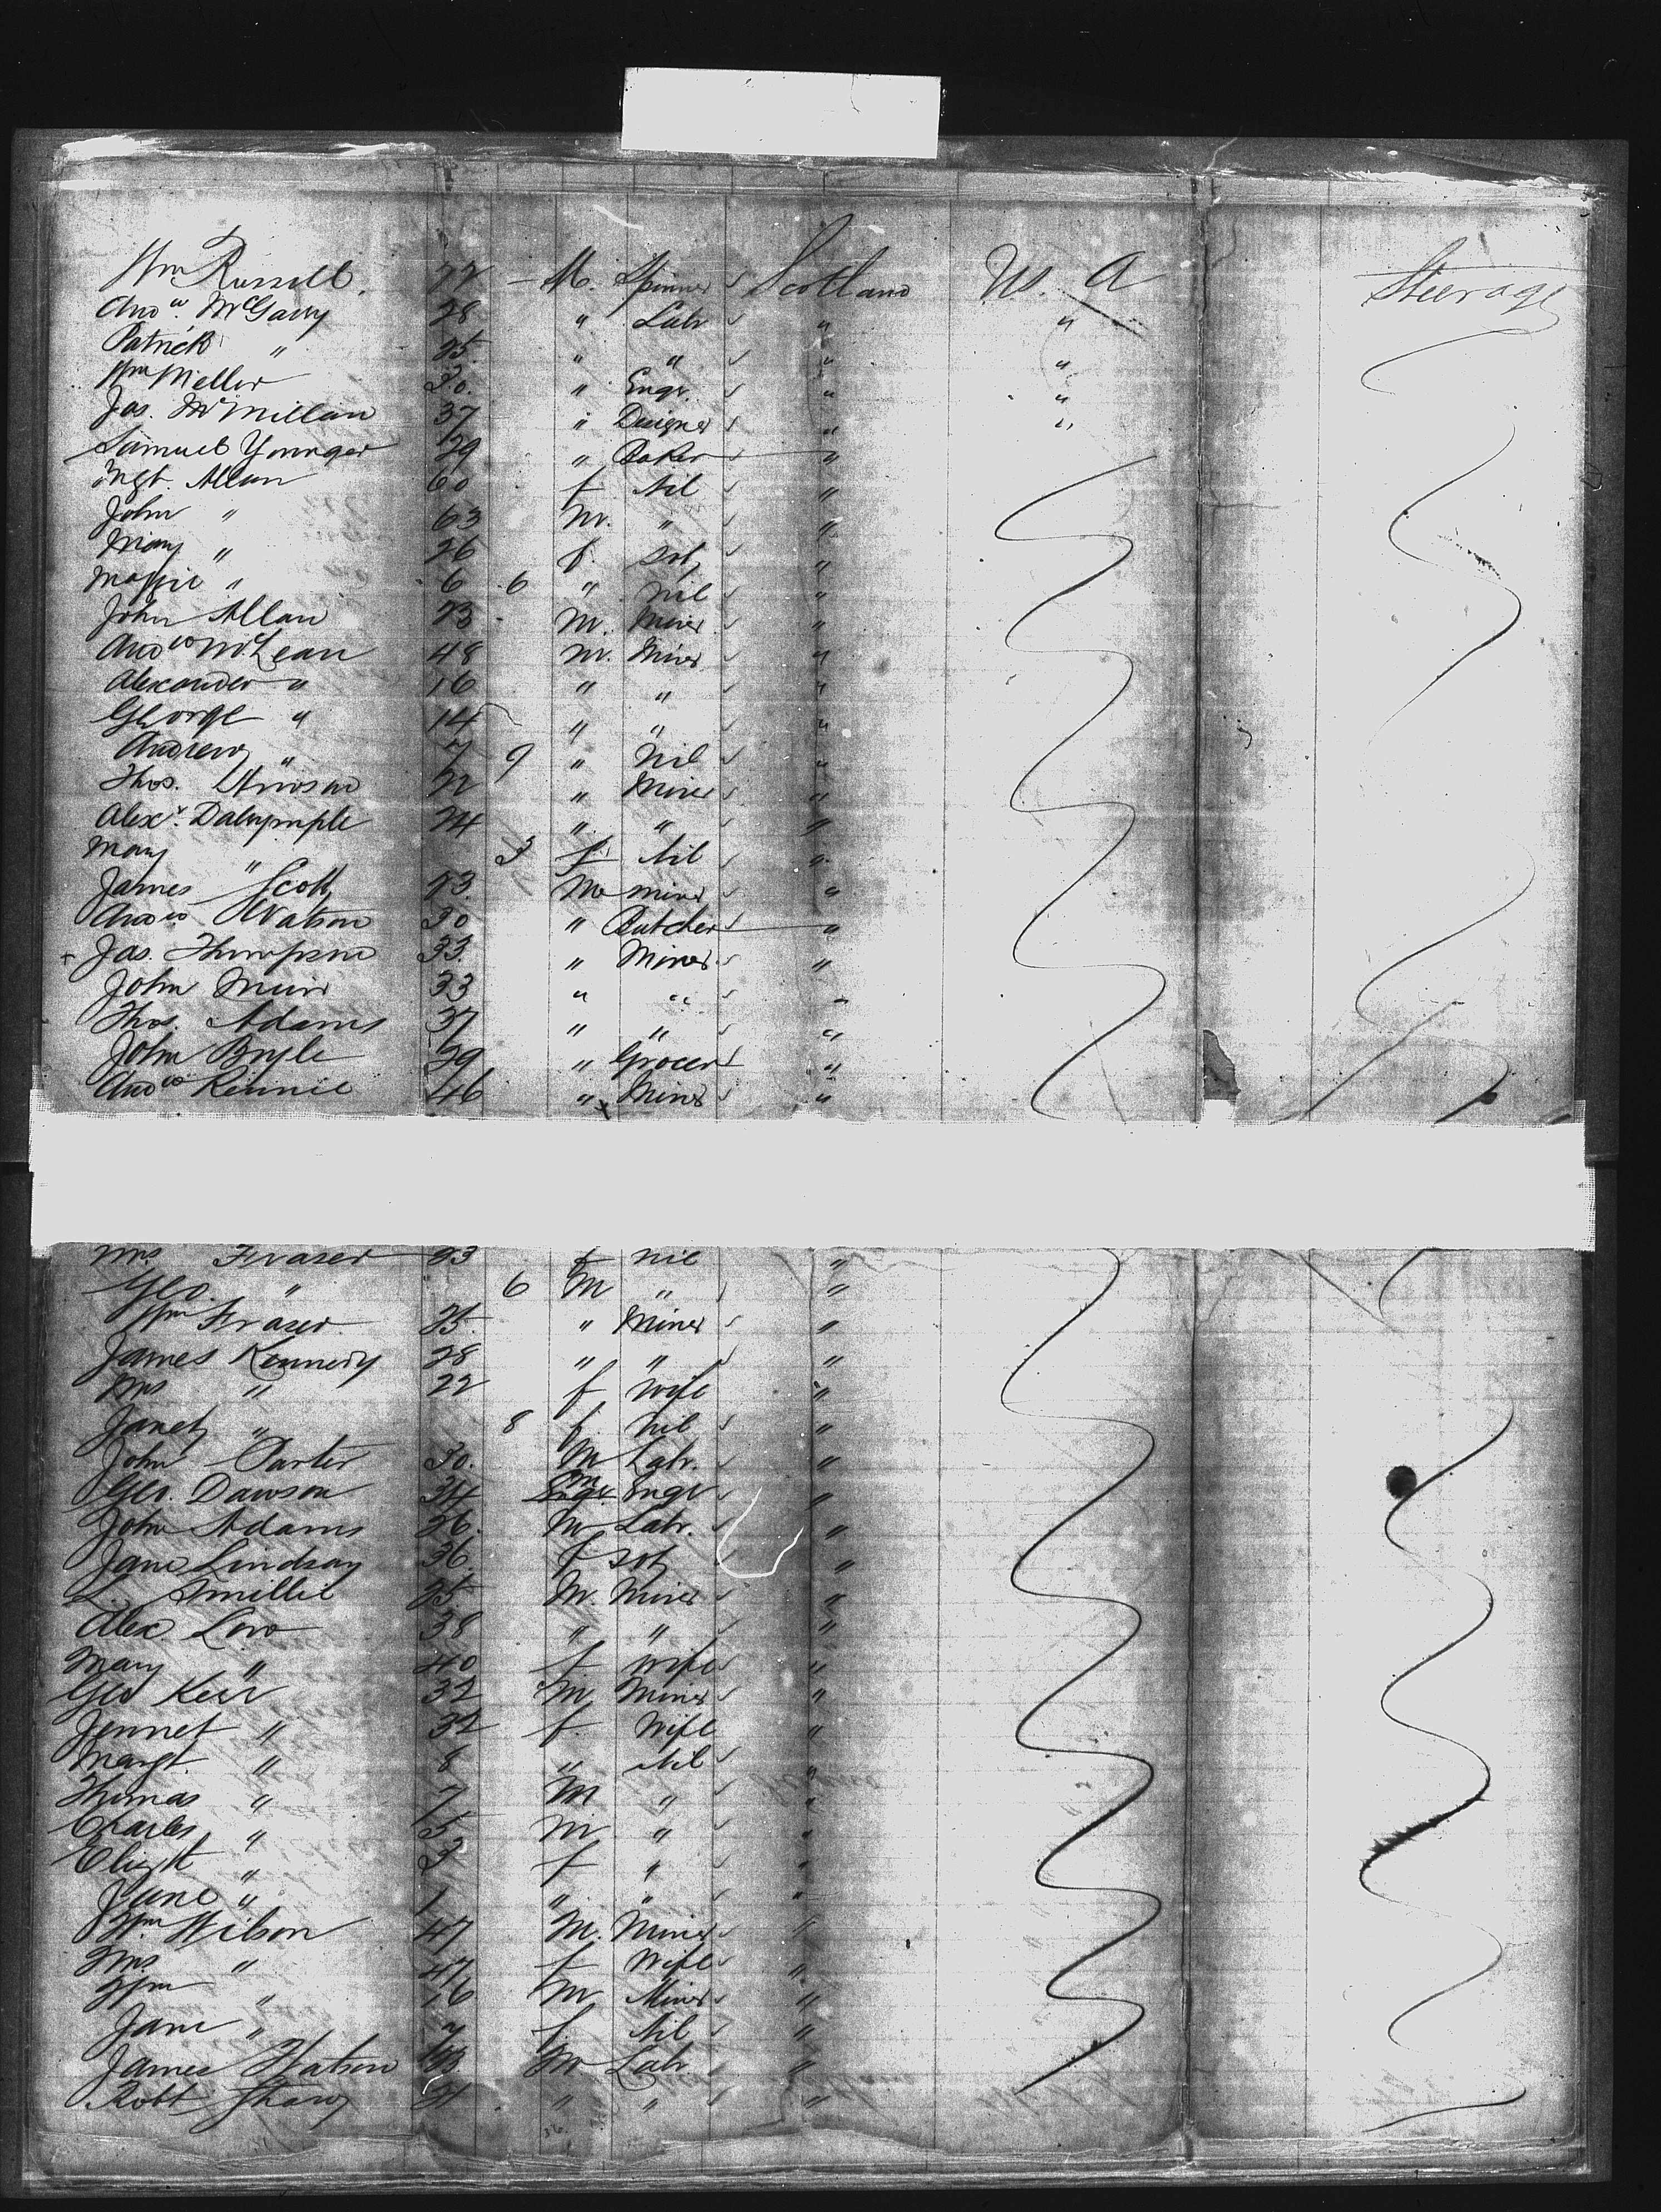 Wm Russell. 22 — M. Spinner Scotland U.S. A Steerage
Andw. McGarry 28 " Labr " "
Patrick " 25. " " " "
Wm Meller 30. " Engr. " "
Jas. McMillan 37 " Designer " "
Samuel Younger 29 " Baker "
Mgt. Allan 60 f Nil "
John " 63 M. " "
Mary " 26 f. "
Maggie " 6 6 " nil "
John Allan 23 M. Miner "
Andw McLean 48 M. Miner "
Alexander " 16 " " "
George " 14 " " "
Andrew " 7 9 " Nil "
Thos. 22 " Miner "
Alexr. Dalrymple 24 " " "
Mary " 3 f Nil "
James Scott 23. M miner "
Andw Watson 30 " Butcher "
+ Jas. Thompson 33. " Miner "
John Muir 33 " " "
Thos. Adams 37 " " "
John Boyle 29 " Grocer "
Andw Rennie 46 " Miner "
Mrs Fraser 23 f nil "
Geo. " 6 M " "
Wm Fraser 25. " Miner "
James Kennedy 28 " " "
Mrs " 22 f Wife "
Janet " 8 f Nil "
John Carter 30. M Labr. "
Geo. Dawson 34 M Engr "
John Adams 26. M Labr. "
Jane Lindsay 36 f "
L. Smillie 25 M. Miner "
Alex Low 38 " " "
Mary " 40 f wife "
Geo Kerr 32 M Miner "
Jennet " 32 f. Wife "
Margt. " 8 " Nil "
Thomas " 7 M " "
Charles " 5 M " "
Elizth " 3 f " "
Jane " 1 " " "
Wm Wilson 47 M. Miner "
Mrs " 47 f Wife "
Wm " 16 M Miner "
Jane " 7 f. Nil "
James Watson M Labr "
Robt Shaw 21 " " "